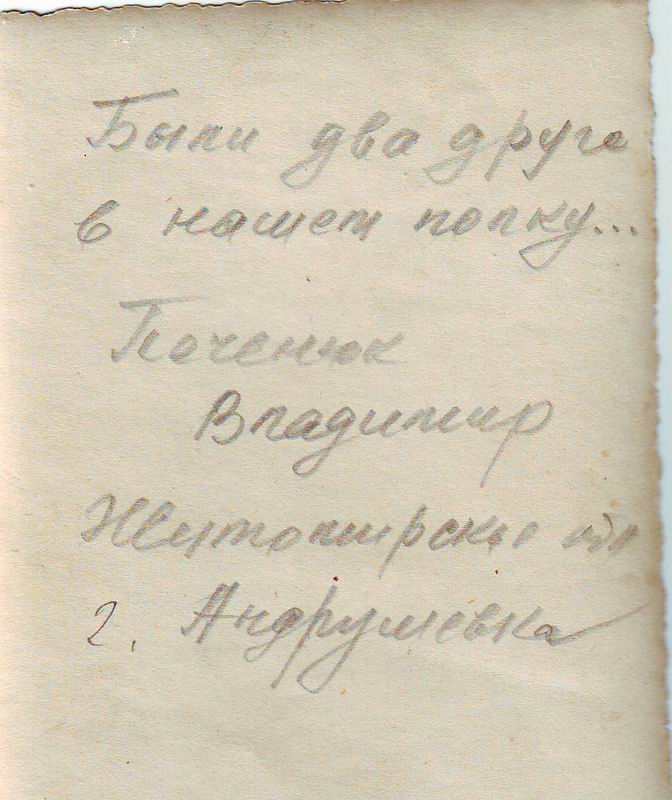 Были два друга
в нашем полку...
Поченюк
Владимир
Житомирская обл
г. Андрушевка